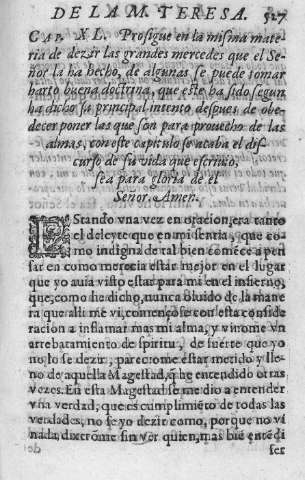 DE LA M. TERESA. 527
CAP. XL. Prosigue en la misma mate-
ria de dezir las grandes mercedes que el Se-
ñor la ha hecho, de algunas se puede tomar
harto buena doctrina, que este ha sido segun
ha dicho su principal intento despues de obe-
decer poner las que son para prouecho de las
almas, con este capitulo se acaba el dis-
curso de su vida que escriuio,
sea para gloria de el
Señor. Amen.
EStando vna vez en oracion, era tanto
el deleyte que en mi sentia, que co-
mo indigna de tal bien comēce a pen
sar en como merecia estar mejor en el lugar
que yo auia visto estar para mi en el infierno,
que, como he dicho, nunca oluido de la mane
ra que alli me vi, començose con esta conside
racion a inflamar mas mi alma, y vinome vn
arrebatamiento de spiritu, de suerte que yo
no lo se dezir, pareciome estar metido y lle-
no de aquella Magestad, q̄ he entendido otras
vezes. En esta Magestad se me dio a entender
vna verdad, que es cumplimiēto de todas las
verdades, no se yo dezir como, porque no vi
nada, dixerōme sin ver quien, mas biē entēdi
ser